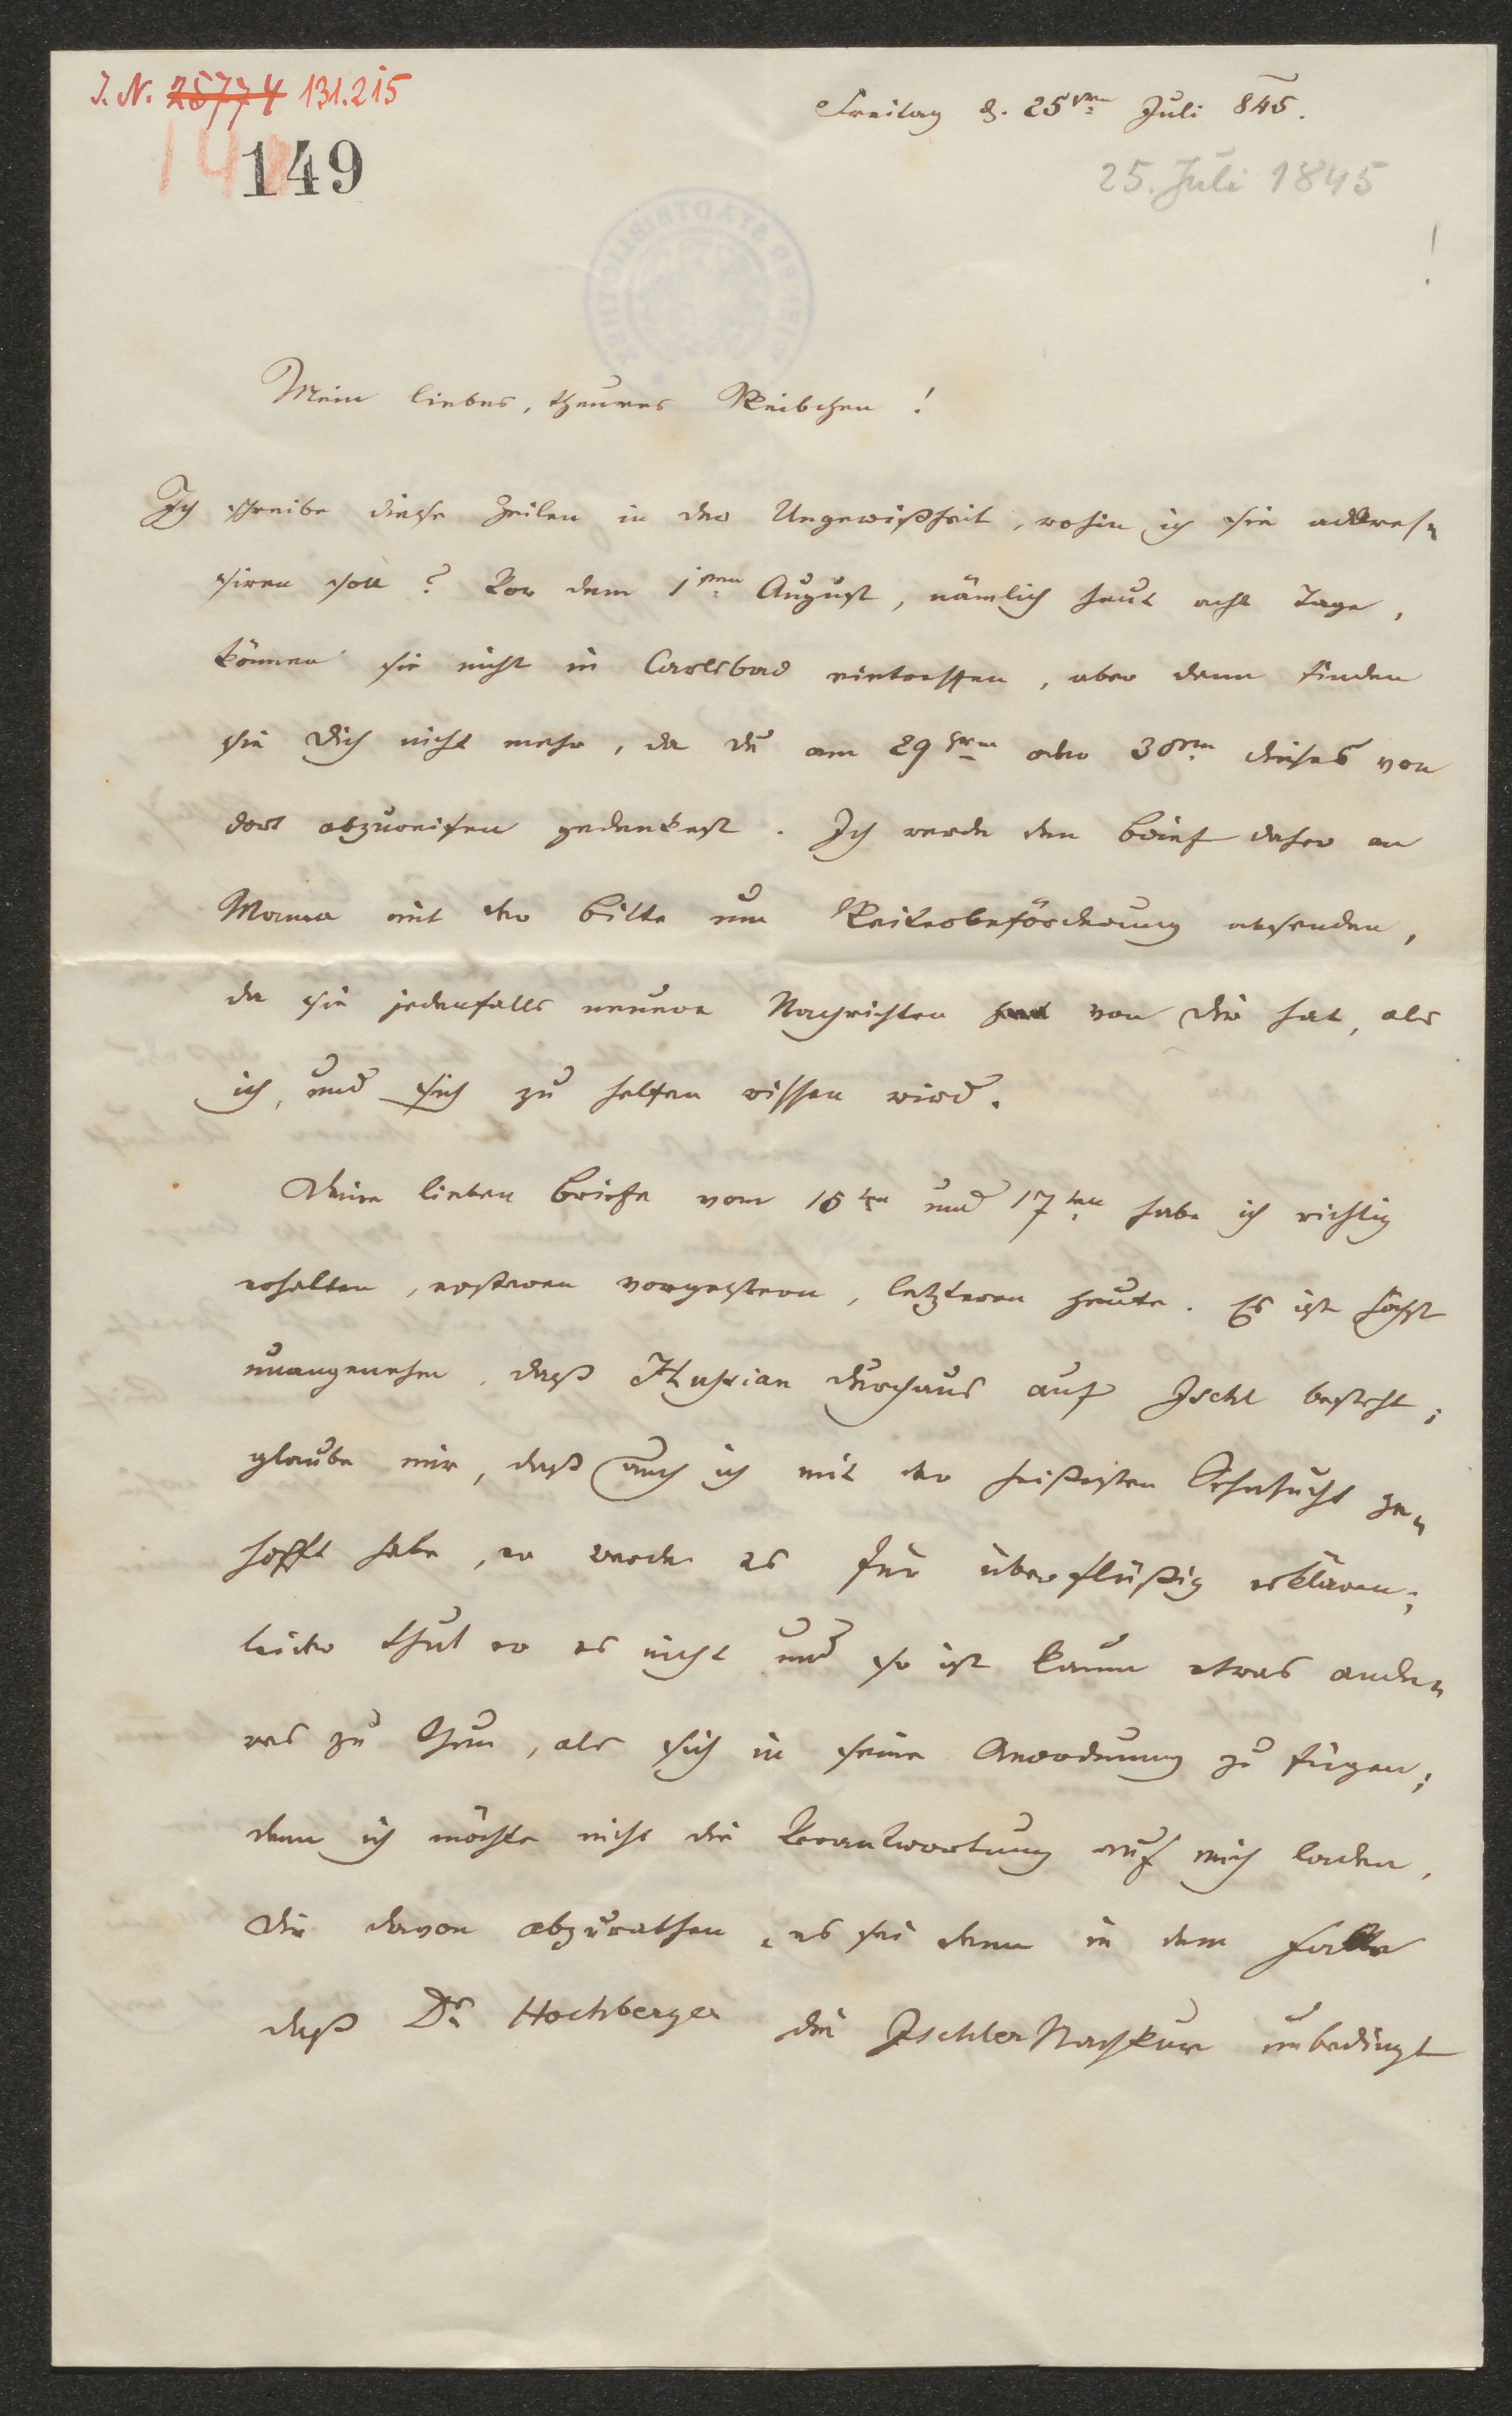 J. N. 25774 131.215
149
Freitag d. 25ten Juli 845.
25. Juli 1845
Mein liebes, theures Weibchen!
Ich schreibe diese Zeilen in der Ungewißheit, wohin ich sie addres-
siren soll? Vor dem 1ten August, nämlich heut acht Tage,
können sie nicht in Carlsbad eintreffen, aber dann finden
sie Dich nicht mehr, da du am 29ten oder 30ten dieses von
dort abzureisen gedenkest. Ich werde den Brief daher an
Mama mit der Bitte um Weiterbeförderung absenden,
da sie jedenfalls neuere Nachrichten von Dir hat, als
ich, und sich zu helfen wissen wird.
Deine lieben Briefe vom 15ten und 17ten habe ich richtig
erhalten, ersteren vorgestern, letzteren heute. Es ist höchst
unangenehm, daß durchaus auf Ischl besteht;
glaube mir, daß auch ich mit der heißesten Sehnsucht ge-
hofft habe, er werde es für überflüßig erklären;
leider thut er es nicht und so ist kaum etwas ande-
res zu thun, als sich in seine Anordnung zu fügen;
denn ich möchte nicht die Verantwortung auf mich laden,
Dir davon abzurathen, es sei denn in dem Falle
daß Dr. Hochberger die Ischler Nachkur unbedingt